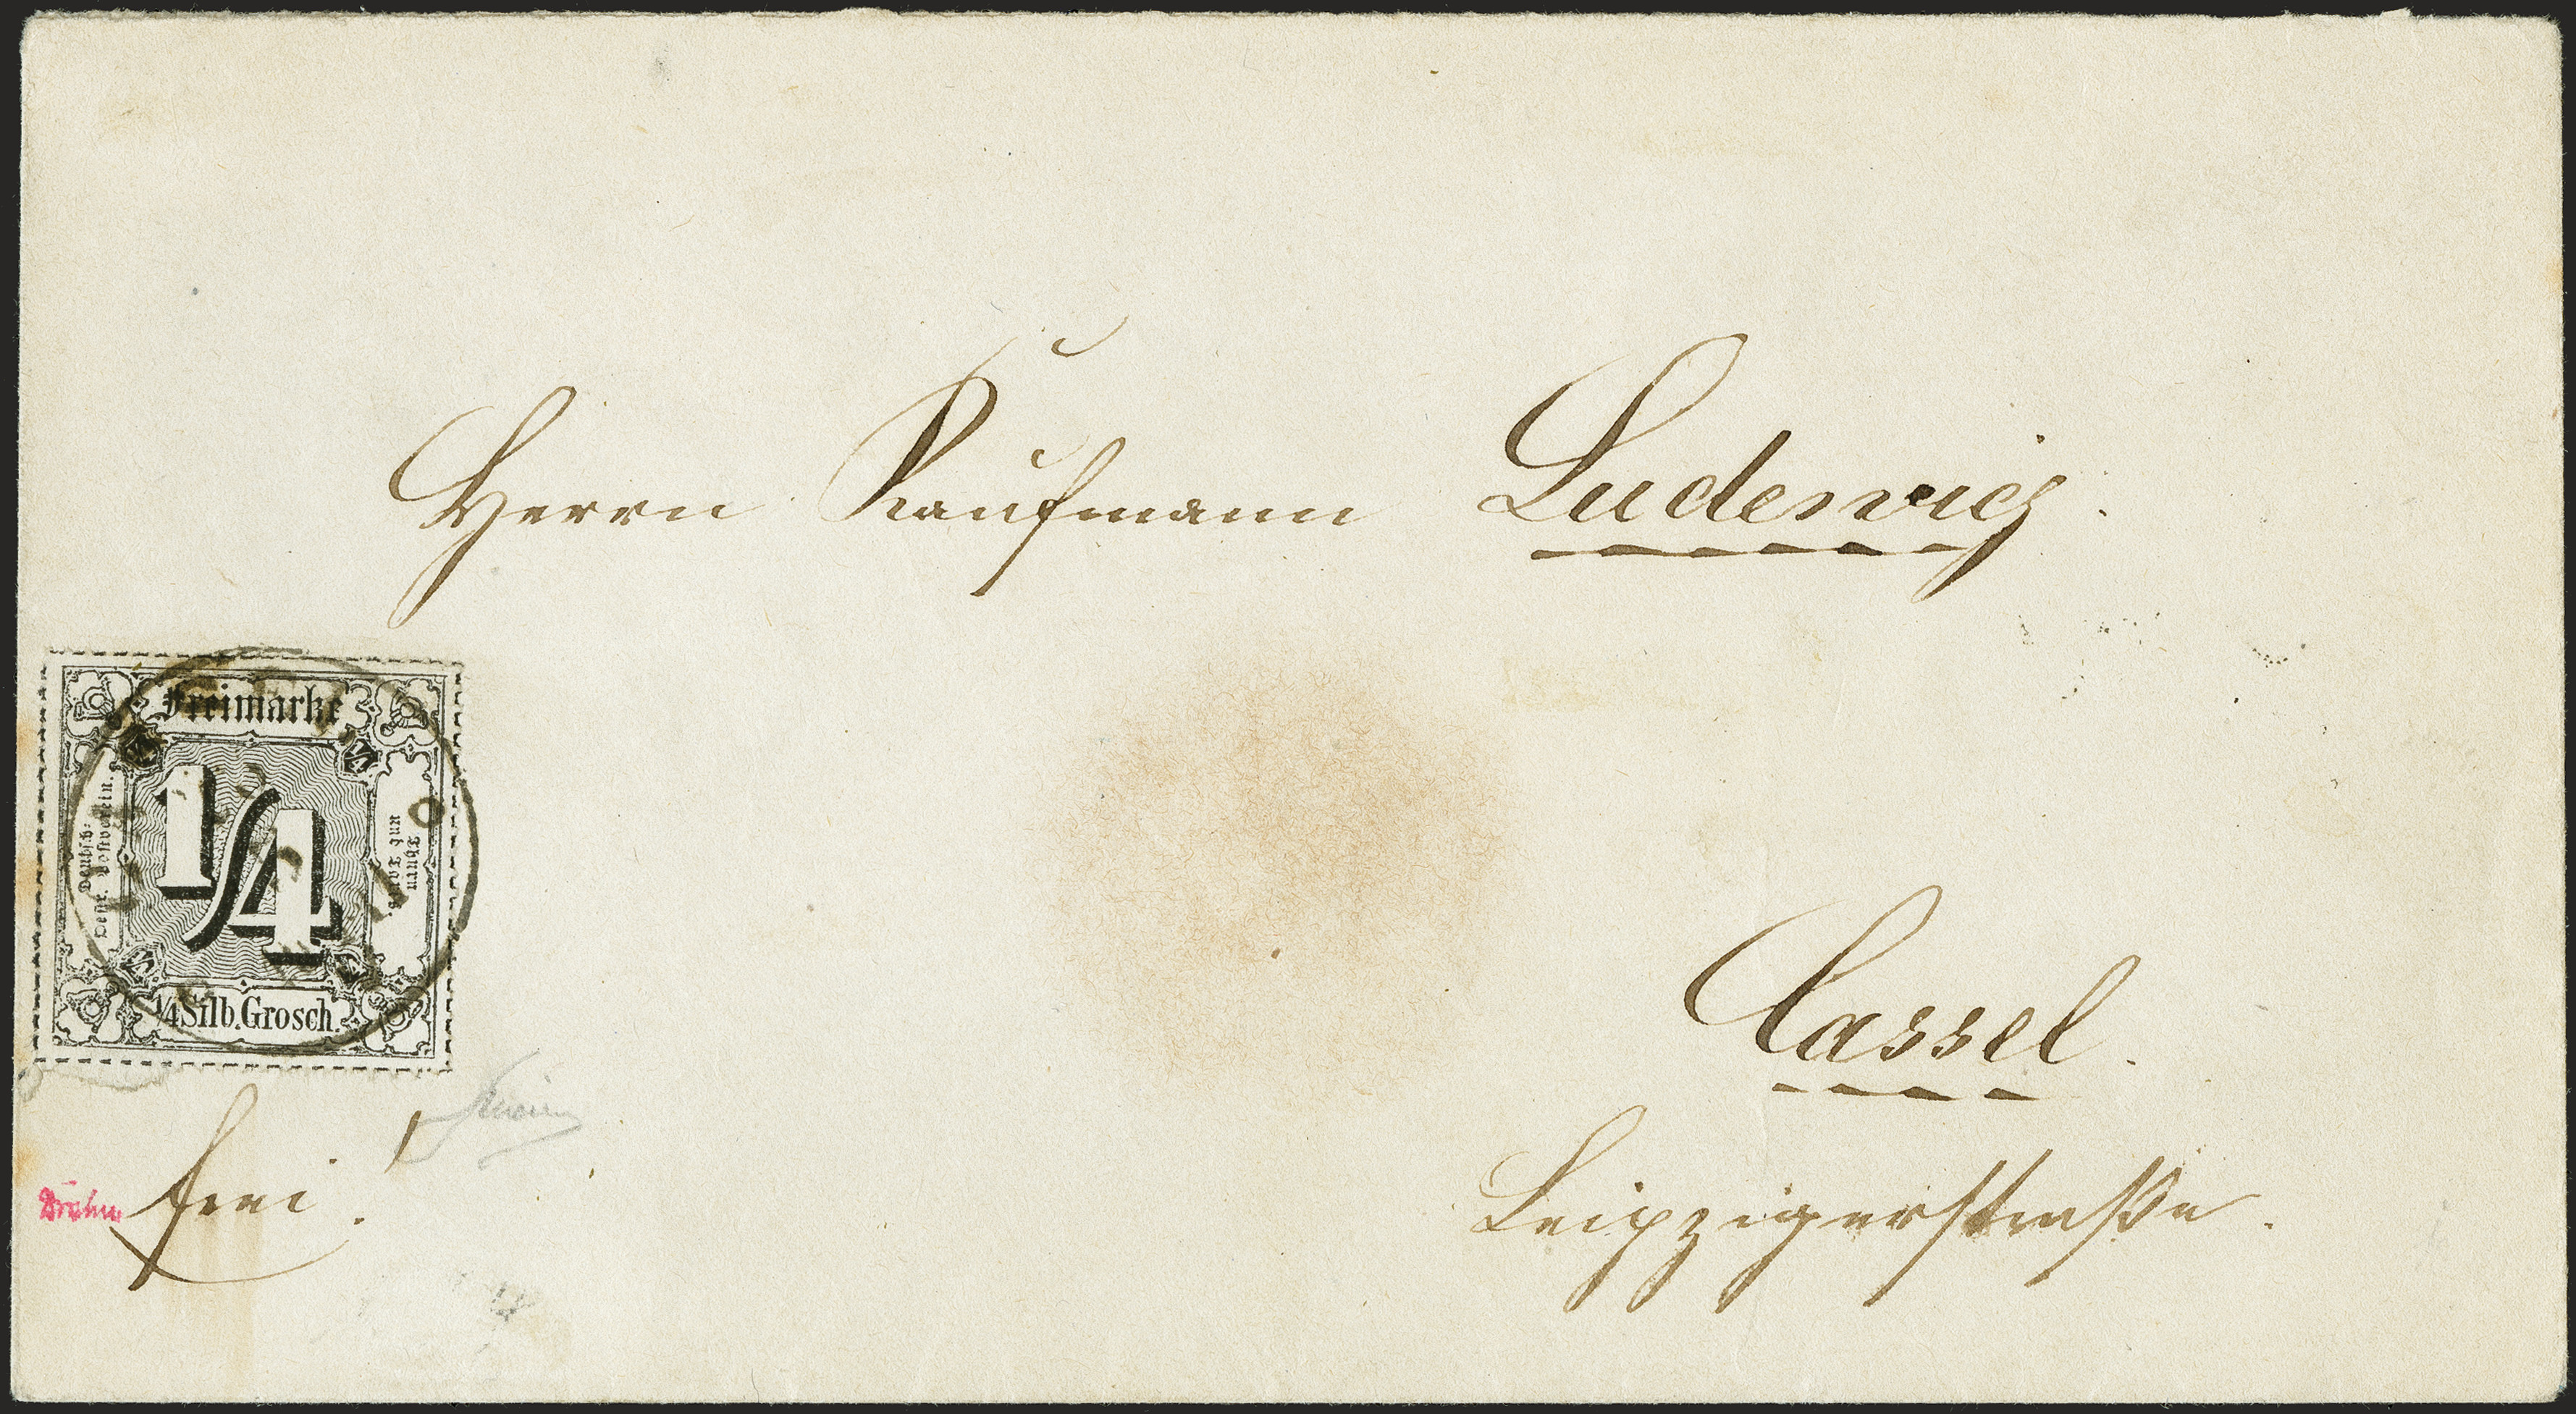 Herrn Kaufmann Ludewig.
Freimarke
Deutsch-
Oestr. Postverein.
1/4
Thurn
und Taxis
1/4 Silb. Grosch.
Cassel.
Leipzigerstraße.
frei.